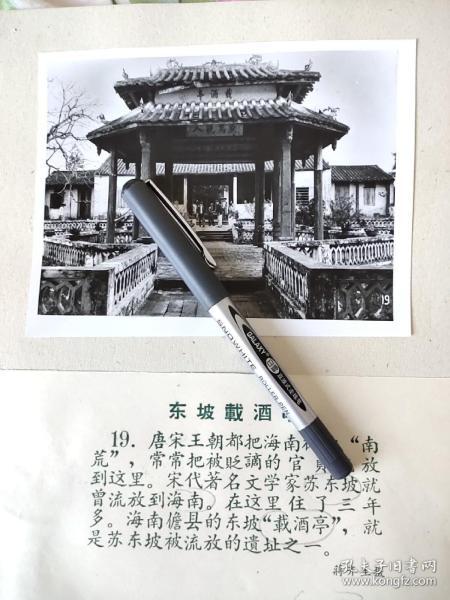 載酒亭
19
GALAXY
SNOWHITE ROLLER PEN
直液式走珠笔
东坡載酒
19. 唐宋王朝都把海南 “南
荒”，常常把被贬謫的官 放
到这里。宋代著名文学家苏东坡就
曾流放到海南。在这里住了三年
多。海南儋县的东坡“載酒亭”，就
是苏东坡被流放的遺址之一。
孔夫子旧书网